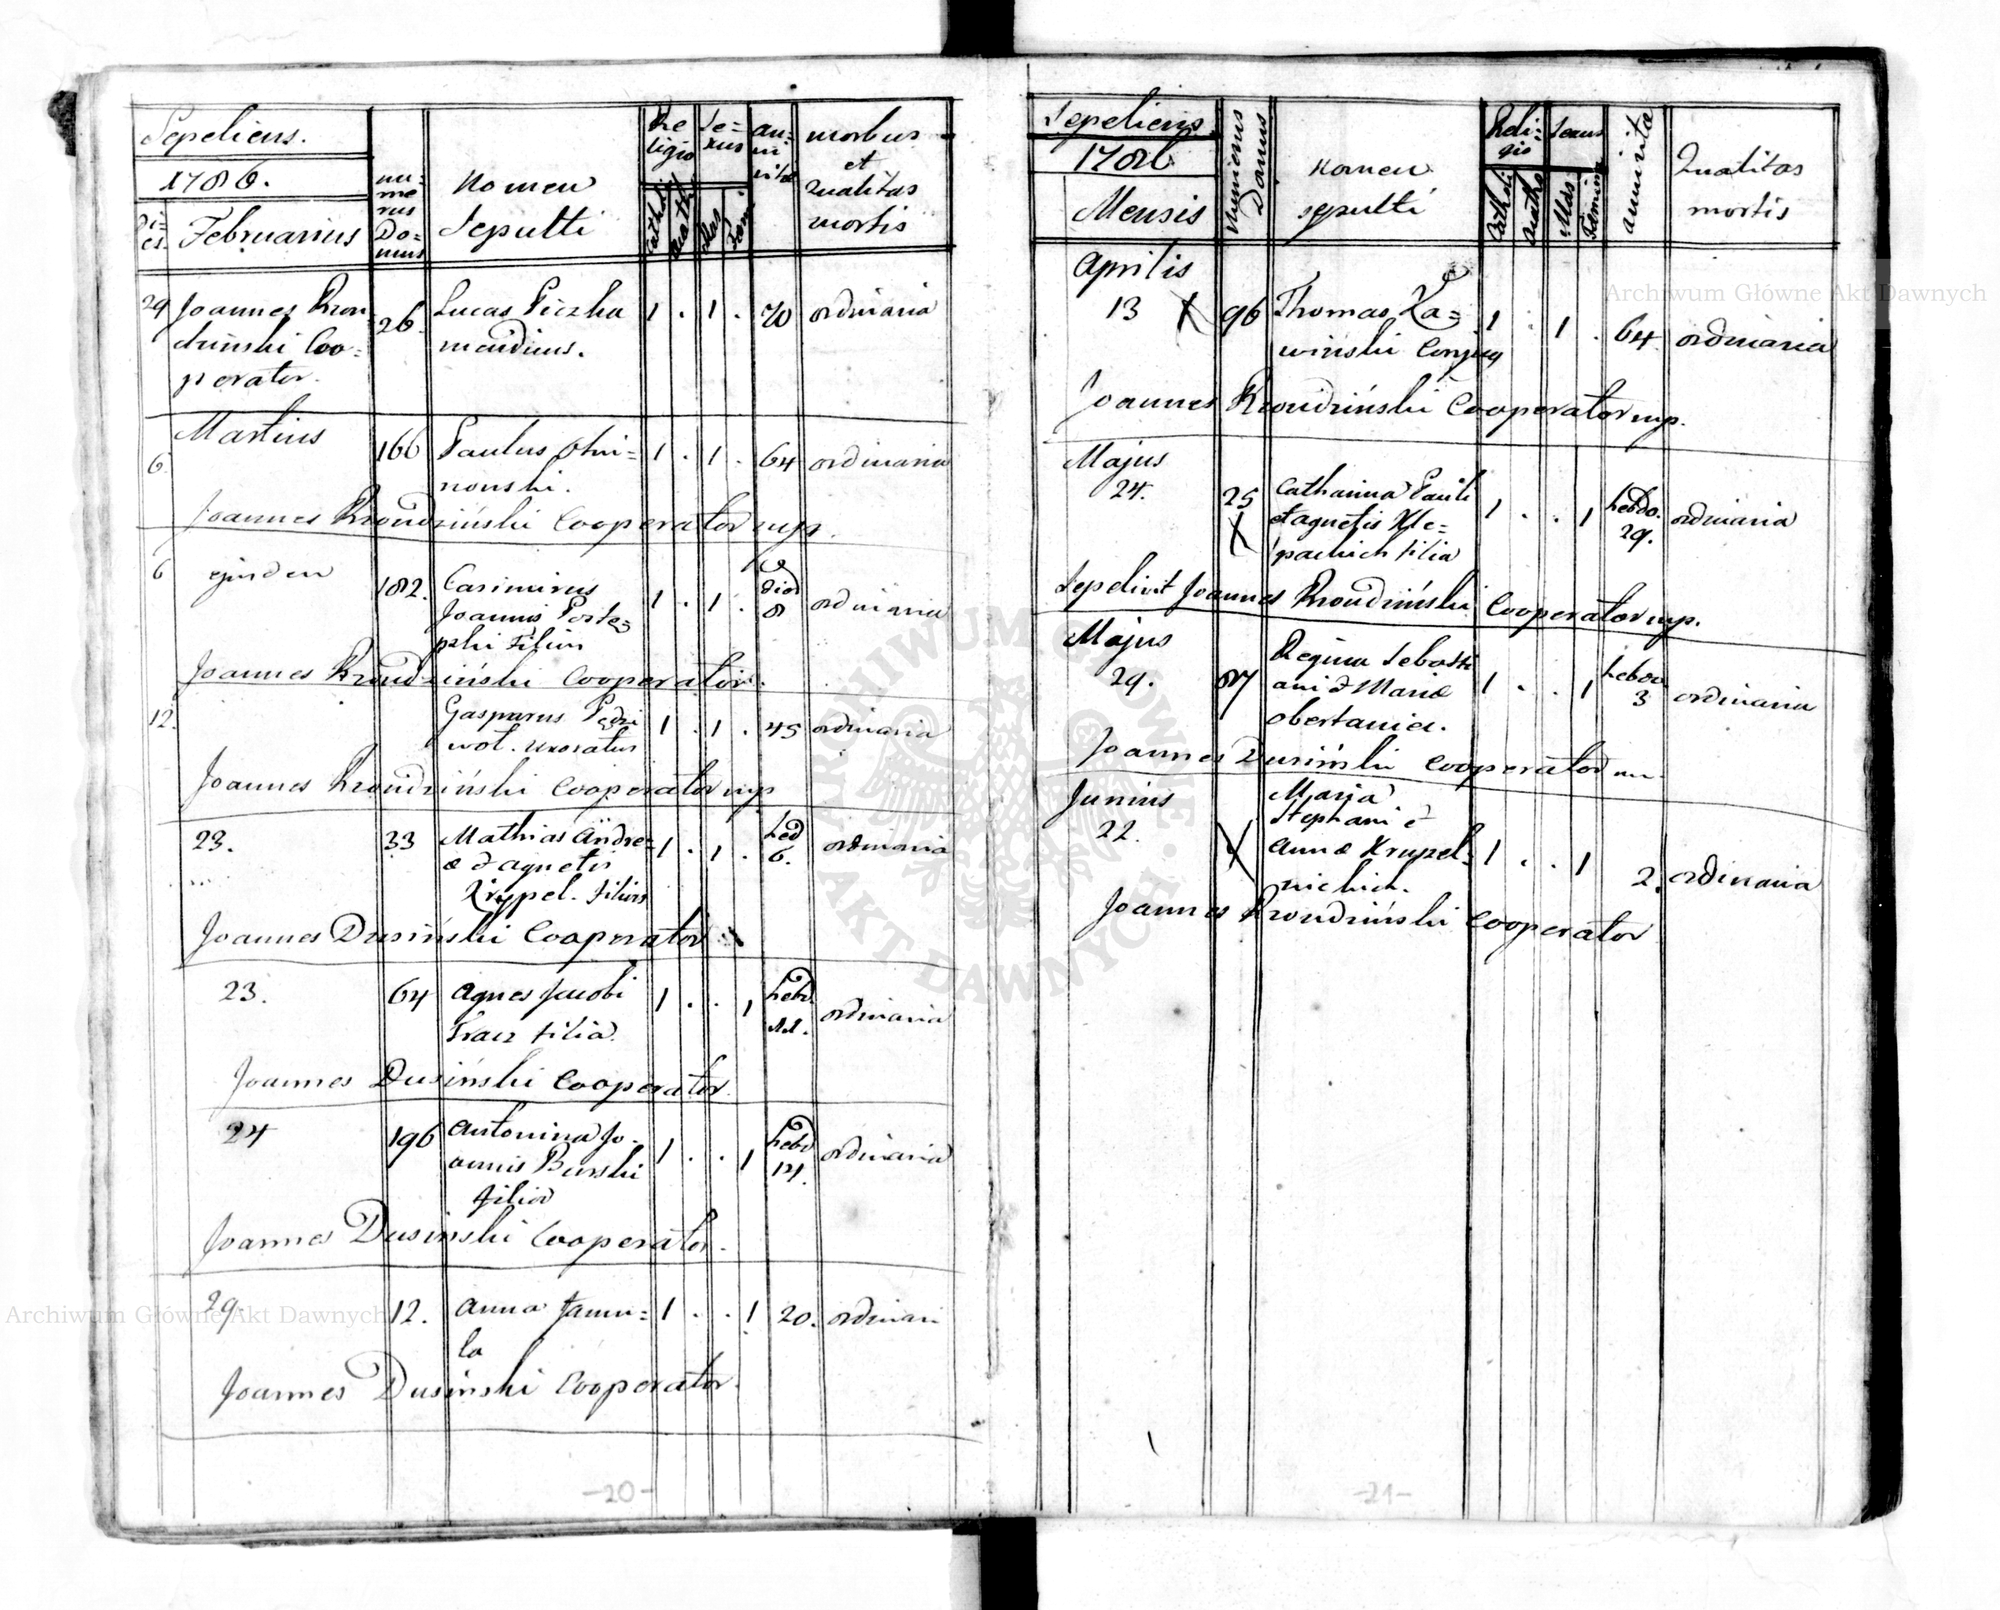 Sepeliens.
1786.
Di=
es
Februarius
nu=
me=
rus
Do=
mus
Nomen
Sepulti
Re
ligio
Cathol:
Acath:
Se=
xus
Mas
Fami
an=
ni
vitæ
morbus
et
Qualitas
mortis
29 Joannes Kron
dziński Coo=
perator.
26.
Lucas Piczka
mendicus.
1 . 1 . 70 ordinaria
Martius
6.
166 Paulus
nonski.
1 . 1 . 64 ordinaria
Joannes Krondziński Cooperator mp.
6 ejusdem
182. Casimirus
Joannis
Filius
1 . 1 .
8 ordinaria
Joannes Krondziński Cooperator.
12.
Gasparus
wol. uxoratus
1 . 1 . 45 ordinaria
Joannes Krondziński Cooperator mp
23. 33 Mathias Andre=
æ & Agnetis
Krypel. Filius
1 . 1 . hed
6. ordinaria
Joannes Dusiński Cooperator
23. 64 Agnes Jacobi
Tracz filia.
1 . . 1 hebd
ordinaria
Joannes Dusiński Cooperator.
24 196 Antonina Jo=
annis Burski
filia
1 . . 1 hebd
14. ordinaria
Joannes Dusinski Cooperator.
29. 12. Anna Jamu=
la
1 . . 1 20. ordinari
Joannes Dusinski Cooperator.
-20-
Sepeliens.
1786
Mensis
Numerus
Domus
Nomen
sepulti
Reli=
gio
Catholi
Acatho
Sexus
Mas
Femini
anni vitæ
Qualitas
mortis
Aprilis
13 X 96 Thomas Ka=
winski Conjug
1 . 1 . 64 ordinaria
Joannes Krondziński Cooperator mp.
Majus
24. 25
X
Catharina Pauli
et Agnetis Kle=
pachich filia
1 . . 1 hebdo.
29. ordinaria
Sepelivit Joannes Krondziński Cooperator mp.
Majus
29. 87 Regina Sebasti
ani & Mariæ
obertania.
1 . . 1 hebdo
3 ordinaria
Joannes Dusiński Cooperator
Junius
22. X
Maria
Stephani &
Annæ Krupel=
nichich.
1 . . 1
2. ordinaria
Joannes Krondziński Cooperator
-21-
Archiwum Główne Akt Dawnych
Archiwum Główne Akt Dawnych
ARCHIWUM GŁÓWNE AKT DAWNYCH